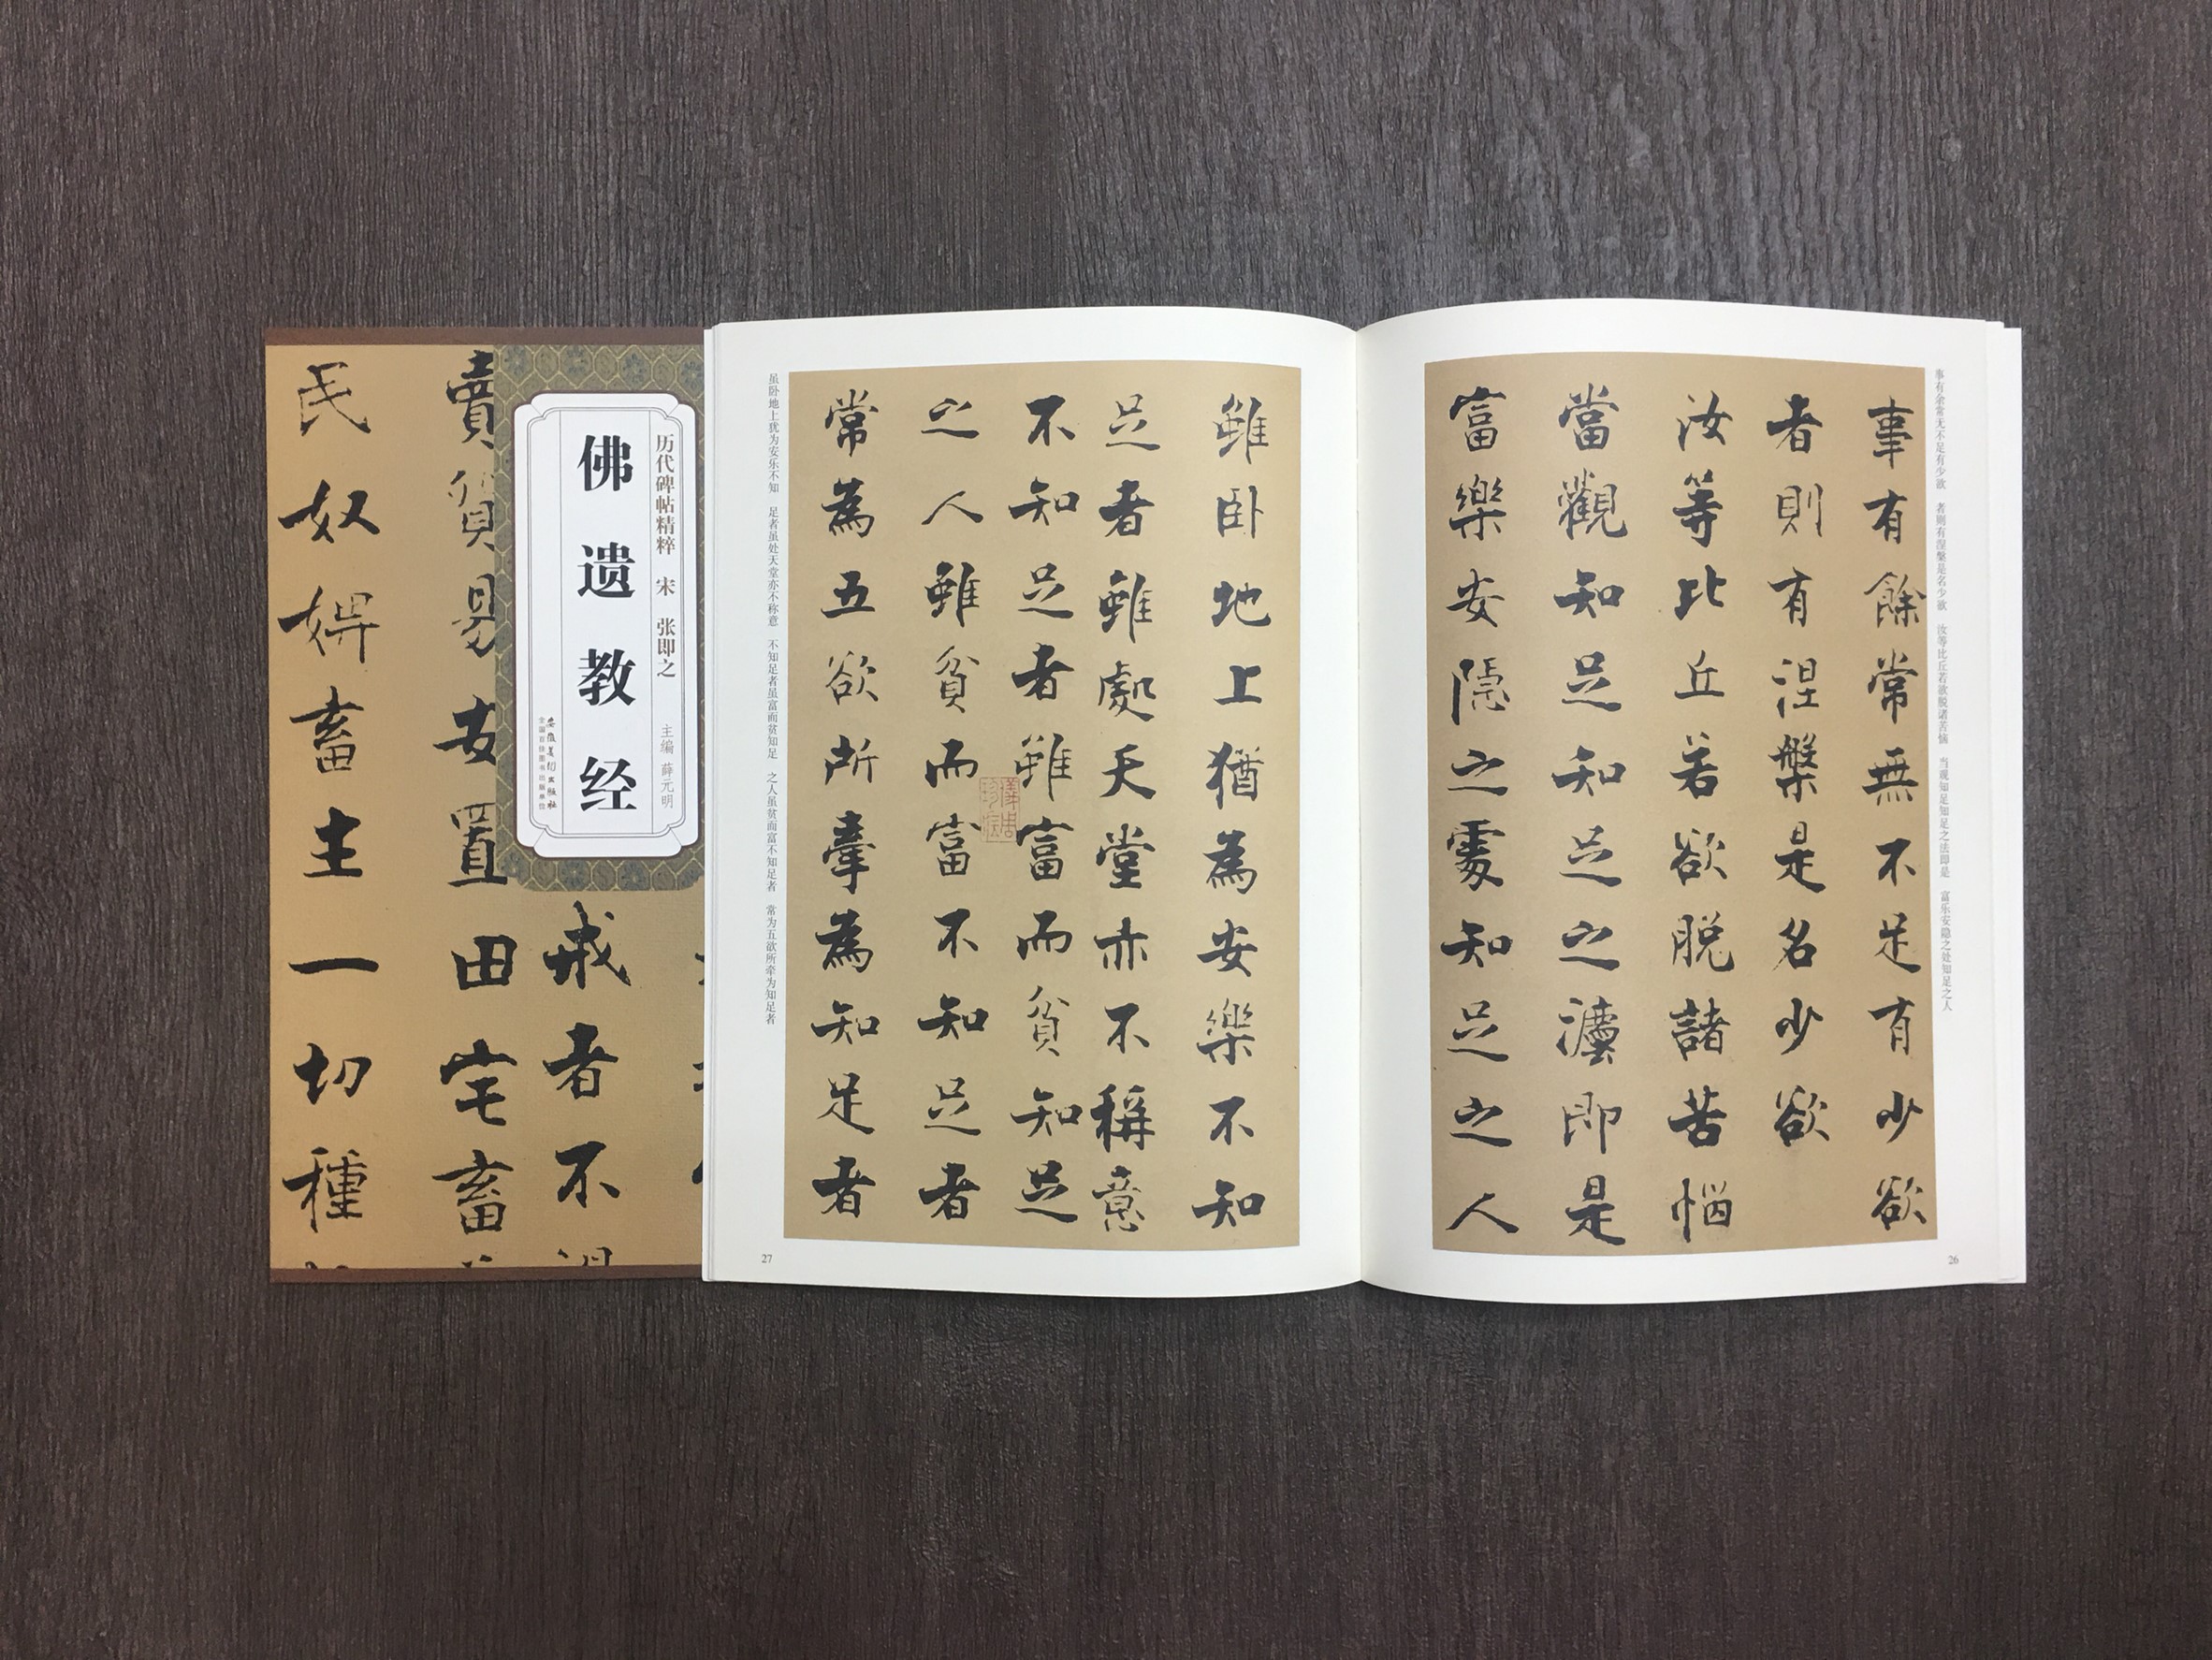 历代碑帖精粹 宋 张即之
佛遗教经
主编 薛元明
安徽美术出版社
全国百佳图书出版单位
戒者不
賣貿易安置田宅畜
民奴婢畜主一切種
事有余常无不足有少欲 者则有涅槃是名少欲 汝等比丘若欲脱诸苦恼 当观知足知足之法即是 富乐安隐之处知足之人
事有餘常無不足有少欲
者則有涅槃是名少欲
汝等比丘若欲脫諸苦惱
當觀知足知足之灋即是
富樂安隱之處知足之人
26
雖卧地上猶為安樂不知
足者雖處天堂亦不稱意
不知足者雖富而貧知足
之人雖貧而富不知足者
常為五欲所牽為知足者
虽卧地上犹为安乐不知 足者虽处天堂亦不称意 不知足者虽富而贫知足 之人虽贫而富不知足者 常为五欲所牵为知足者
27